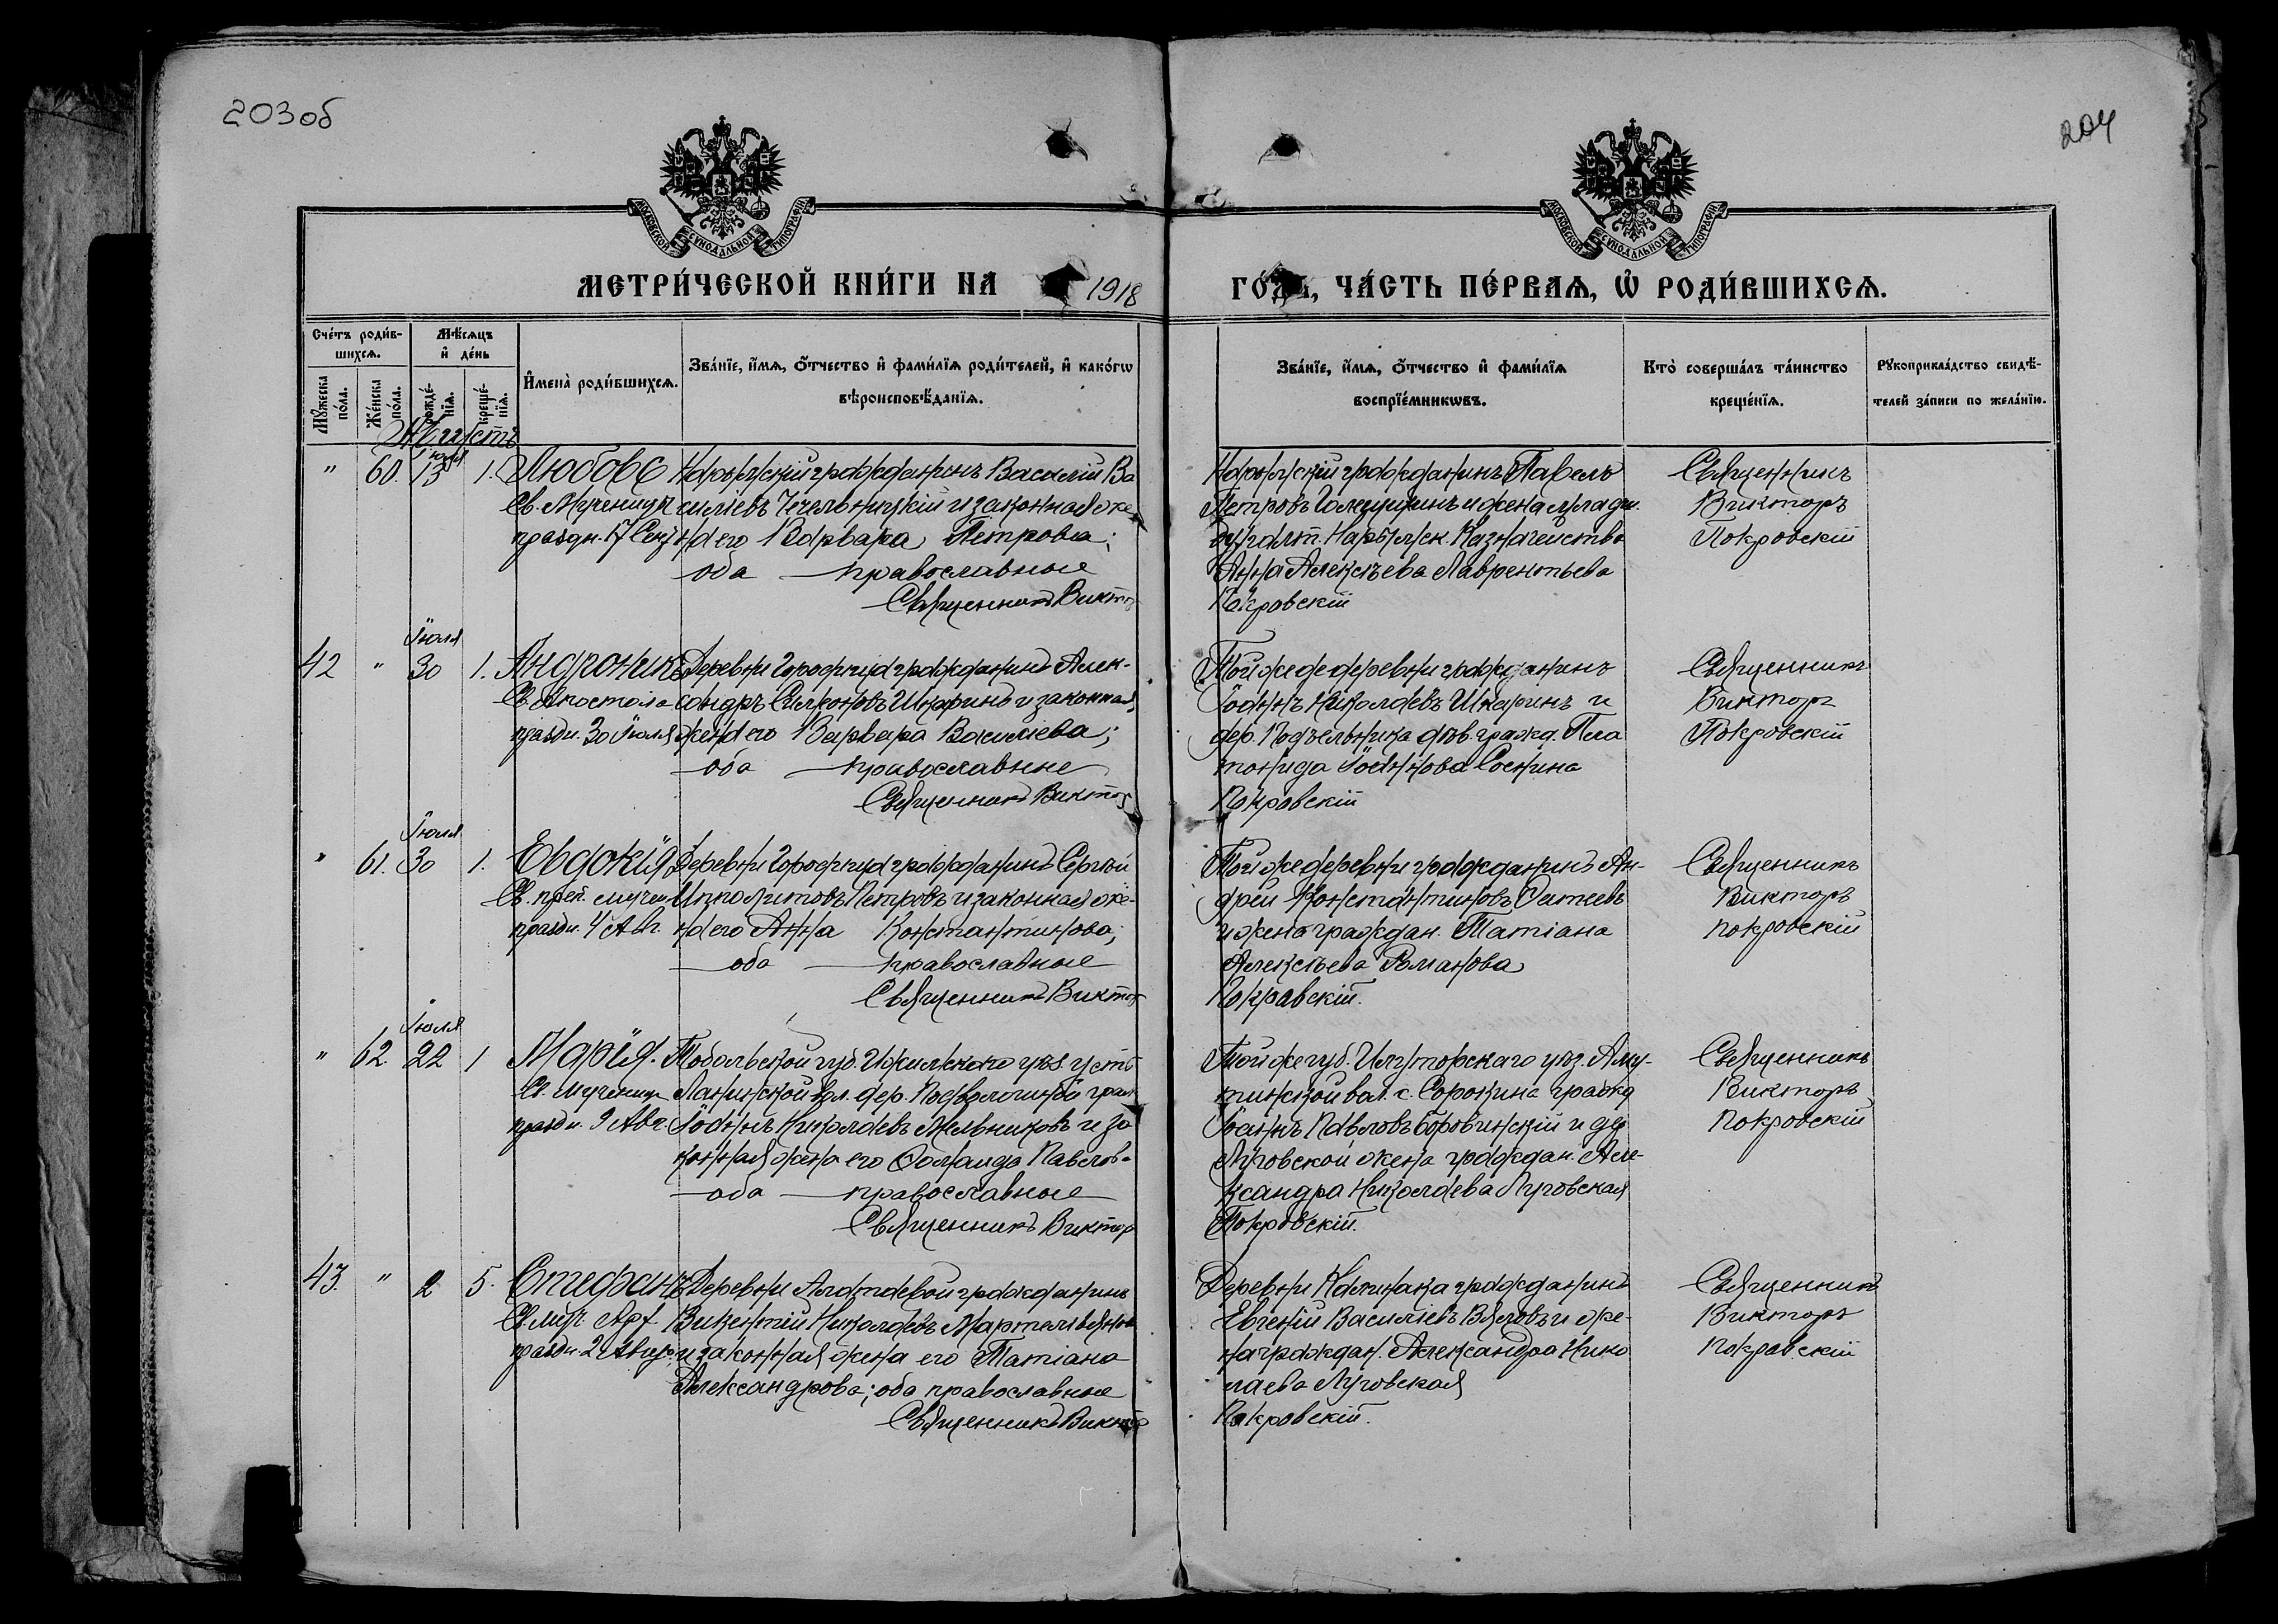 203об
204
МОСКОВСКОЙ СѴНОДАЛЬНОЙ ТИПОГРАФІИ
МОСКОВСКОЙ СѴНОДАЛЬНОЙ ТИПОГРАФІИ
МЕТРИ́ЧЕСКОЙ КНИ́ГИ НА 1918
ГО́ДЪ, ЧА́СТЬ ПЕ́РВАѦ, Ѡ҆ РОДИ́ВШИХСѦ.
Сче́тъ роди́в-
шихсѧ.
Мꙋ́жеска
по́ла.
Же́нска
по́ла.
Мѣ́сѧцъ
и҆ де́нь
рожде́-
нїѧ.
креще́-
нїѧ.
И҆мена̀ роди́вшихсѧ.
Зва́нїе, и҆́мѧ, ѻ҆́тчество и҆ фами́лїѧ роди́телей, и҆ како́гѡ
вѣроисповѣ́данїѧ.
Зва́нїе, и҆́мѧ, ѻ҆́тчество и҆ фами́лїѧ
воспрїе́мникѡвъ.
Кто̀ соверша́лъ та́инство
креще́нїѧ.
Рꙋкоприкла́дство свидѣ́-
телей за́писи по жела́нїю.
Августъ
" 60. Іюля 13 1. Любовь
Св. Мученицы
праздн. 17 Сен.
гражданинъ Василій Ва
сильевъ и законная же
на его Варвара Петровна;
оба православные
Священникъ Виктор
гражданинъ Павелъ
Петровъ и жена младш.
Казначейства
Анна Алексѣева Лаврентьева
Покровскій
Священникъ
Викторъ
Покровскій
Іюля
42 " 30 1. Андроникъ
Св. Апостола
праздн. 30 Іюля
Деревни гражданинъ Алек-
сандръ Шкаринъ и законная
жена его Варвара Васильева;
оба православные
Священникъ Виктор
Той же деревни гражданинъ
Іоаннъ Николаевъ Шкаринъ и
дер. Подъельника дѣв. гражд. Пла
тонида Іоаннова Соснина
Покровскій
Священникъ
Викторъ
Покровскій
Іюля
" 61. 30 1. Евдокія
Св. преп. мучен.
праздн. 4 Авг.
Деревни гражданинъ Сергѣй
Ипполитовъ Петровъ и законная же-
на его Анна Константинова;
оба православные
Священникъ Виктор
Той же деревни гражданинъ Ан-
дрей Константиновъ
и жена граждан. Татіана
Алексѣева Романова
Покровскій.
Священникъ
Викторъ
Покровскій
Іюля
" 62. 22 1 Марія.
Св. мученицы
праздн. 9 Авг.
Тобольской губ. Ишимскаго уѣз. Усть
Ламинской вол. дер. Подволошной граж
Іоаннъ Николаевъ Мельниковъ и за
конная жена его Павлов-
оба православные
Священникъ Виктор
Той же губ. Ялуторскаго уѣз. Ому-
тинской вол. с. Сорокина гражд
Іоаннъ Павловъ Боровинскій и дер
Луговской жена граждан. Але-
ксандра Николаева Луговская
Покровскій.
Священникъ
Викторъ
Покровскій
43. " 2 5. Стефанъ
праздн. 2 Август
Деревни гражданинъ
Викентій Николаевъ
и законная жена его Татіана
Александрова; оба православные
Священникъ Виктор
Деревни гражданинъ
Евгеній Васильевъ Вяловъ и же-
на граждан. Александра Нико
лаева Луговская
Покровскій.
Священникъ
Викторъ
Покровскій